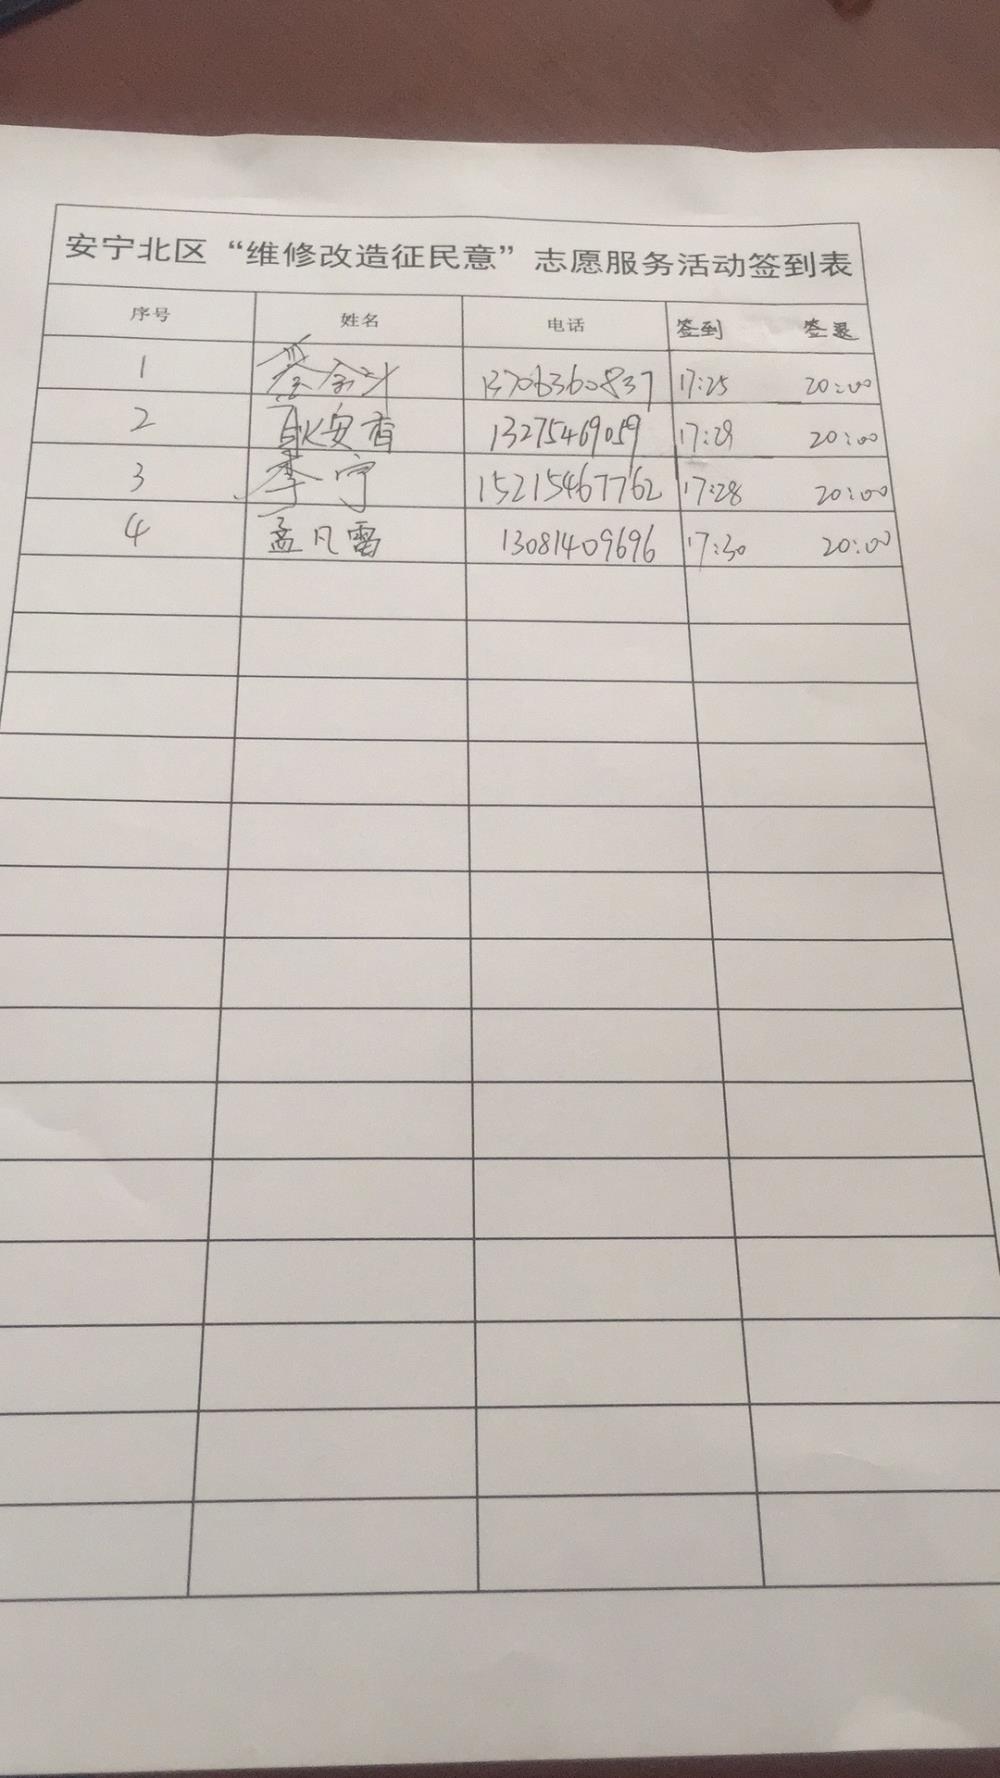 安宁北区“维修改造征民意”志愿服务活动签到表
序号 姓名 电话 签到 签退
1 13706360837 17:25 20:00
2 耿安香 13275469059 17:29 20:00
3 李宁 15215467762 17:28 20:00
4 孟凡雷 13081409696 17:30 20:00